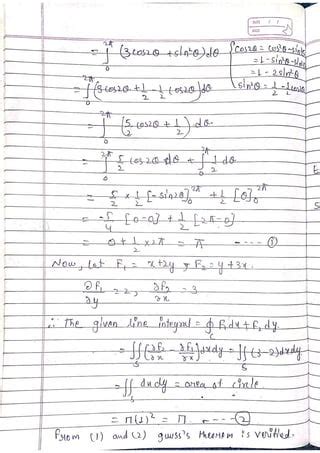 = ∫₀^2π (3cos2θ + sin²θ) dθ
{cos2θ = cos²θ - sin²θ
= 1 - sin²θ - sin²θ
= 1 - 2sin²θ
sin²θ = 1/2 - 1/2 cos2θ
= ∫₀^2π (3cos2θ + 1/2 - 1/2 cos2θ) dθ
= ∫₀^2π (5/2 cos2θ + 1/2) dθ.
= ∫₀^2π 5/2 cos2θ dθ + ∫₀^2π 1/2 dθ
= 5/2 × 1/2 [-sin2θ]₀^2π + 1/2 [θ]₀^2π
= -5/4 [0-0] + 1/2 [2π-0]
= 0 + 1/2 × 2π = π ---- ①
Now, let F₁ = x+2y, F₂ = y+3x.
∂F₁/∂y = 2, ∂F₂/∂x = 3
∴ The given line integral = ∮_C F₁dx + F₂dy
= ∬_S [∂F₂/∂x - ∂F₁/∂x] dxdy = ∬_S (3-2)dxdy
= ∬_S dxdy = area of circle
= π(1)² = π ---- ②
From (1) and (2) gauss's theorem is verified.